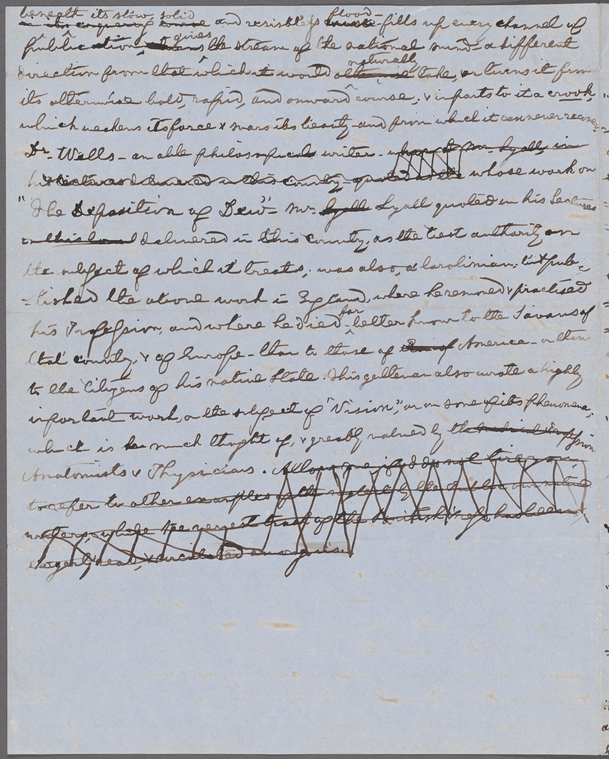 beneath its slow, solid flood
and resistless fills up every channel of
publication gives the stream of the national mind, a different
direction from that which it would naturally take, or turns it from
its otherwise bold, rapid, and onward course; & imparts to it a crook
which weakens its force & mars its beauty and from which it can never recover.
Dr. Wells - an able philosophical writer -
whose work on
"The Deposition of Dew" Mr. Lyall quoted in his Lectures
delivered in this country, as the best authority on
the subject of which it treats, was also, a Carolinian; but pub-
-lished the above work in England, where he removed & practised
his Profession, and where he died - far better known to the Savans of
that country, & of Europe - than to those of America - or even
to the Citizens of his native State. This gentleman also wrote a highly
important work, on the subject of "Vision", or on some of its phenomena;
which is much thought of, & greatly valued by
Anatomists & Physicians.
to refer to other examples of the
writers, while the
eagerly read, & circulated among us.